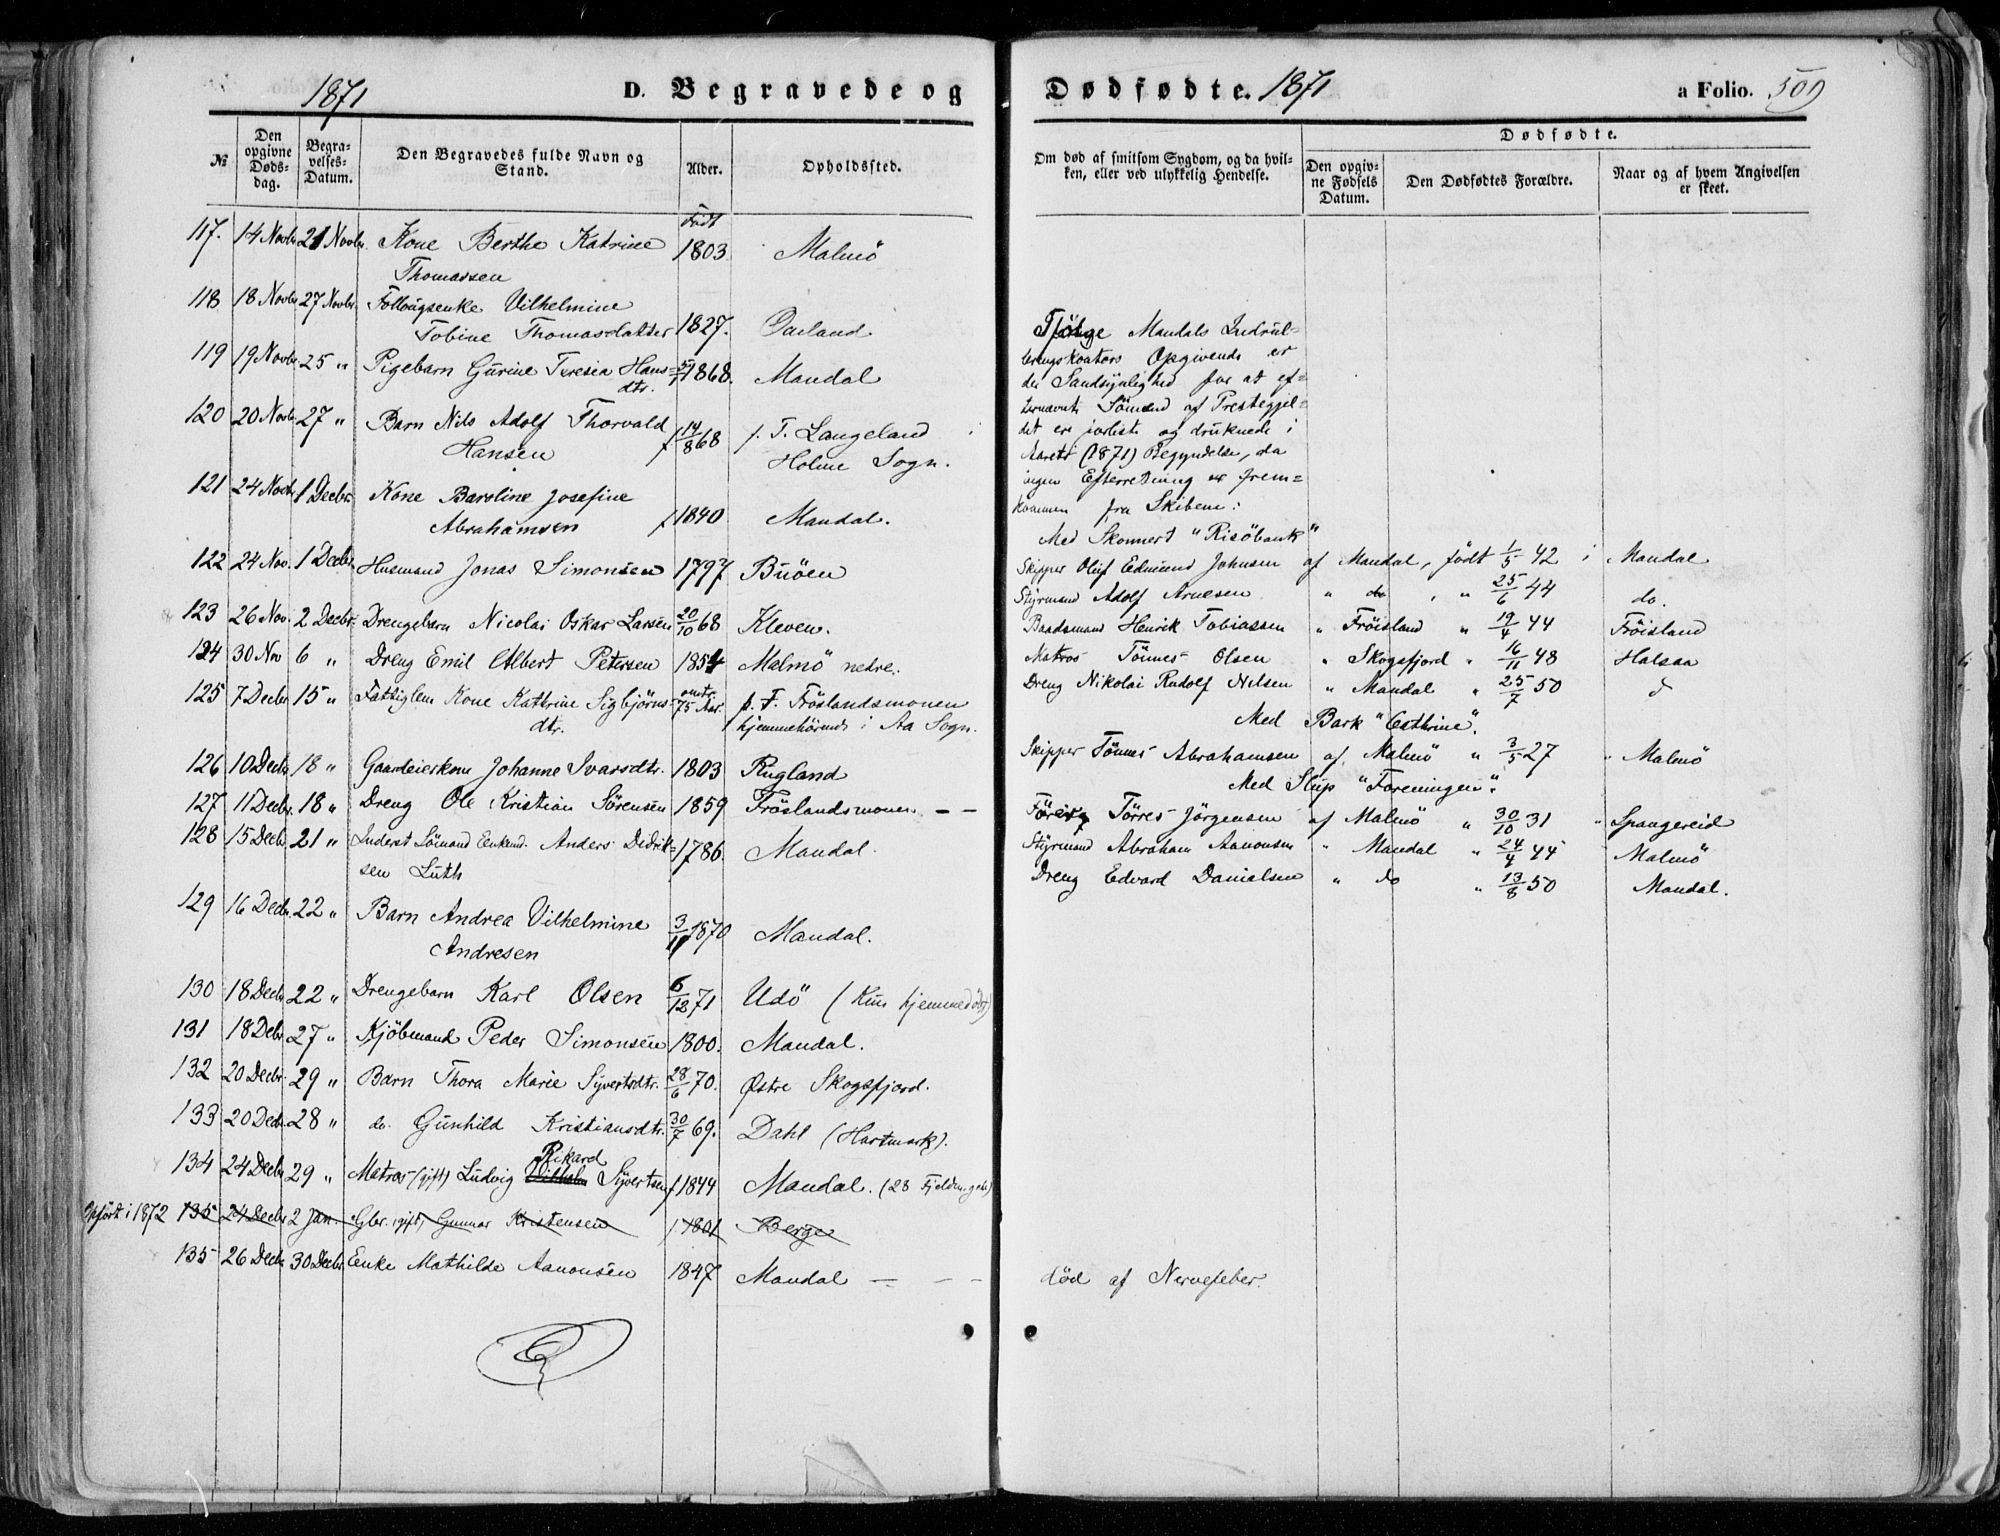 1871 D. Begravede og
№ Den opgivne Døds-dag. Begra-velses-Datum. Den Begravedes fulde Navn og Stand. Alder. Opholdssted.
117. 14 Novbr 21 Novbr. Kone Berthe Katrine Født 1803 Malmö
Thomassen
118 18 Novbr 27 Novbr. Vilhelmine
Tobine Thomasdatter 1827.
119 19 Novbr. 25 " Pigebarn Gurine Teresia Hans= 5/1 1868. Mandal
dtr.
120 20 Novbr 27 " Barn Nils Adolf Thorvald f 14/8 68 p. T. Langeland i
Hansen Holme Sogn.
121 24 Novbr 1 Decbr. Kone Josefine
Abrahamsen f 1840 Mandal.
122 24 Nov. 1 Decbr. Husmand Jonas Simonsen 1797 Buöen
123 26 Nov. 2 Decbr. Drengebarn Nicolai Oskar Larsen 20/10 68 Kleven.
124 30 Nov 6 " Dreng Emil Albert Petersen 1854 Malmö nedre.
125 7 Decbr 15 " Fattiglem Kone Kathrine Sigbjörns- omtr. 75 Aar. p. T. Fröslandsmonen
dtr. hjemmehörende i Aa Sogn.
126 10 Decbr 18 " Gaardeierkone Johanne Ivarsdtr. 1803 Rugland
127 11 Decbr. 18 " Dreng Ole Kristian Sörensen 1859 Fröslandsmonen — —
128 15 Decbr. 21 " Inderst Sömand Enkemd. Anders Didrik= 1786. Mandal.
sen Luth
129 16 Decbr. 22 " Barn Andrea Vilhelmine 3/11 1870 Mandal.
Andresen
130 18 Decbr 22 " Drengebarn Karl Olsen 6/12 71 Udö (Kun hjemmedöbt)
131 18 Decbr 27 " Kjöbmand Peder Simonsen 1800. Mandal.
132 20 Decbr. 29 " Barn Thora Marie Syvertsdtr. 28/6 70. Østre Skogsfjord.
133 20 Decbr. 28 " do. Gunhild Kristiansdtr. 30/7 69. Dahl (Hartmark).
Rikard
134 24 Decbr 29 " Matros (gift) Ludvig Vilhelm Syvertsen f 1844 Mandal.
Opfört i 1872 135 24 Decbr 2 Jan. Gbr. (gift) Gunnar Kristensen 1801 Berge
135 26 Decbr 30 Decbr Enke Mathilde Aanonsen 1847 Mandal — — —
Dødfødte. 1871 a Folio. 509
Om død af smitsom Sygdom, og da hvil-ken, eller ved ulykkelig Hendelse. Dødfødte.
Den opgiv-ne Fødsels Datum. Den Dødfødtes Forældre. Naar og af hvem Angivelsen er skeet.
Ifølge Mandals Indrul-
leringskontors Opgivende er
der Sandsynlighed for at ef=
ternævnte Sömænd af Prestegjel=
det ere forliste og druknede i
Aarets (1871) Begyndelse, da
ingen Efterretning er frem=
kommen fra Skibene:
Med Skonnert "Risöbank"
Skipper Oluf Edmund Johnsen af Mandal, född 1/5 42 i Mandal
Styrmand Adolf Arnesen " do , " 25/6 44 do.
Baadsmand Henrik Tobiassen " Fröisland " 19/4 44 Fröisland
Matros Tönnes Olsen " Skogsfjord " 16/11 48 Halsaa
Dreng Nikolai Rudolf Nilsen " Mandal " 25/7 50 d
Med Bark "Cathrine".
Skipper Tönnes Abrahamsen af Malmö " 3/5 27 " Malmö
Med Slup "Foreningen".
Förer Törres Jörgensen af Malmö " 30/10 31 " Spangereid
Styrmand Abraham Aanonsen " Mandal " 24/4 44 Malmö
Dreng Edvard Danielsen " do " 13/8 50 Mandal.
död af Nervefeber.